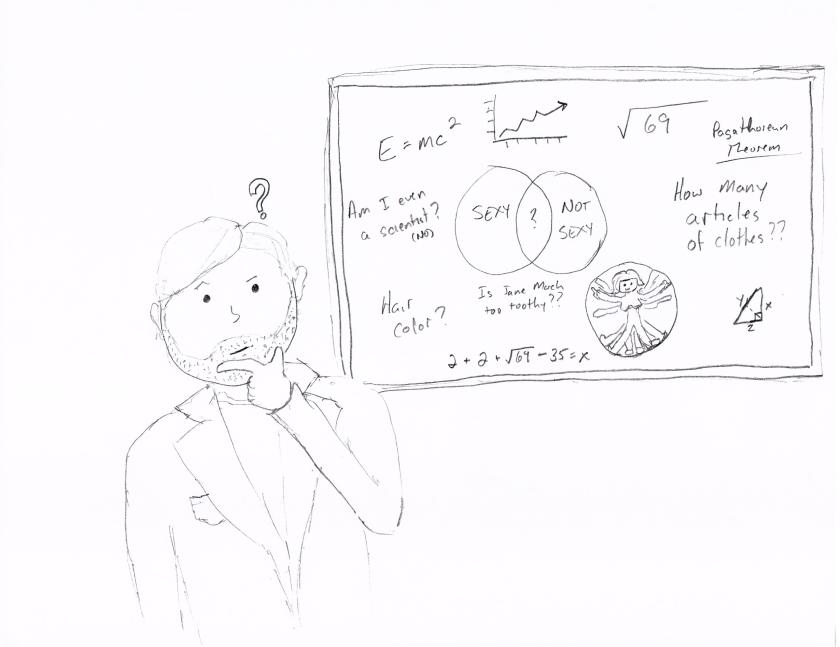 E = mc²
√69
Pagathoreun
Theorem
?
Am I even
a scientist?
(NO)
SEXY
?
NOT
SEXY
How Many
articles
of clothes??
Hair
color?
Is Jane Mach
too toothy??
y
x
z
2 + 2 + √69 - 35 = x